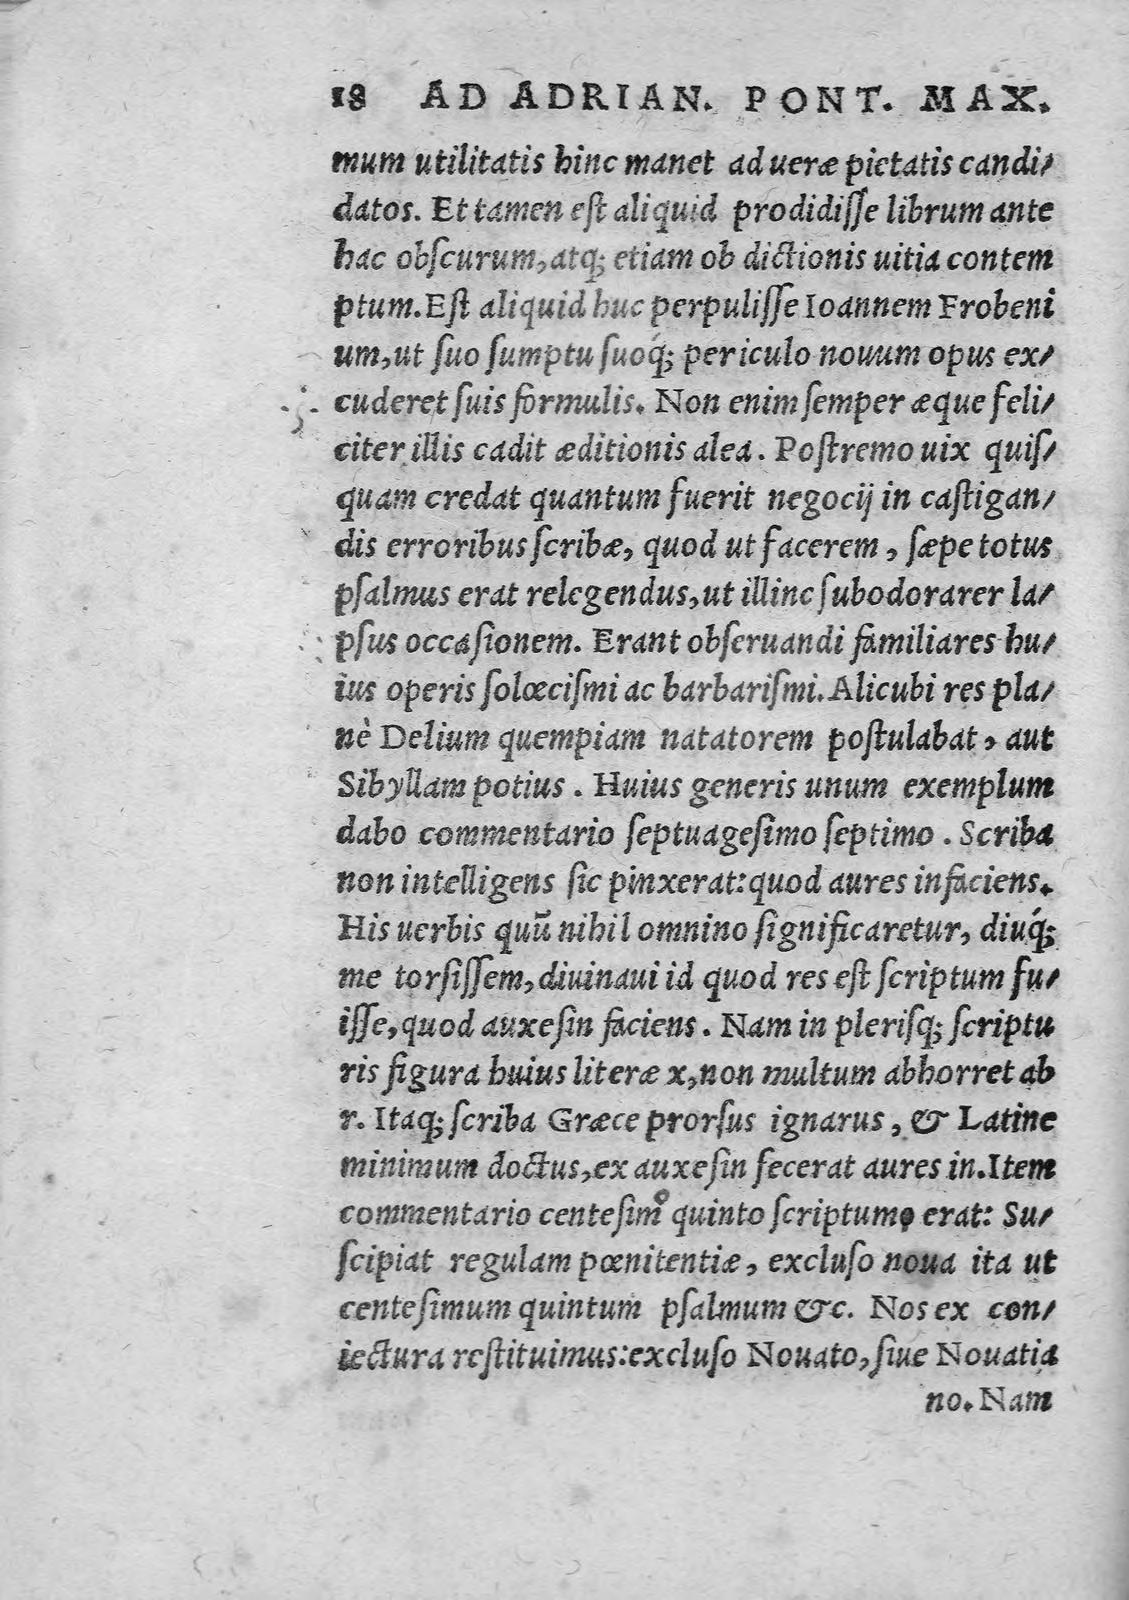 18 AD ADRIAN. PONT. MAX.
mum utilitatis hinc manet ad ueræ pietatis candi/
datos. Et tamen eſt aliquid prodidiſſe librum ante
hac obſcurum, atq; etiam ob dictionis uitia contem
ptum. Eſt aliquid huc perpuliſſe Ioannem Frobeni
um, ut ſuo ſumptu ſuoq́; periculo nouum opus ex/
cuderet ſuis formulis. Non enim ſemper æque feli/
citer illis cadit æditionis alea. Poſtremo uix quiſ/
quam credat quantum fuerit negocij in caſtigan/
dis erroribus ſcribæ, quod ut facerem, ſæpe totus
pſalmus erat relegendus, ut illinc ſubodorarer la/
pſus occaſionem. Erant obſeruandi familiares hu/
ius operis ſolœciſmi ac barbariſmi. Alicubi res pla/
nè Delium quempiam natatorem poſtulabat, aut
Sibyllam potius. Huius generis unum exemplum
dabo commentario ſeptuageſimo ſeptimo. Scriba
non intelligens ſic pinxerat: quod aures infaciens.
His uerbis quū nihil omnino ſignificaretur, diuq́;
me torſiſſem, diuinaui id quod res eſt ſcriptum fu/
iſſe, quod auxeſin faciens. Nam in pleriſq; ſcriptu
ris figura huius literæ x, non multum abhorret ab
r. Itaq; ſcriba Græce prorſus ignarus, & Latine
minimum doctus, ex auxeſin fecerat aures in. Item
commentario centeſimo quinto ſcriptum erat: Su/
ſcipiat regulam pœnitentiæ, excluſo noua ita ut
centeſimum quintum pſalmum &c. Nos ex con/
iectura reſtituimus: excluſo Nouato, ſiue Nouatia
no. Nam